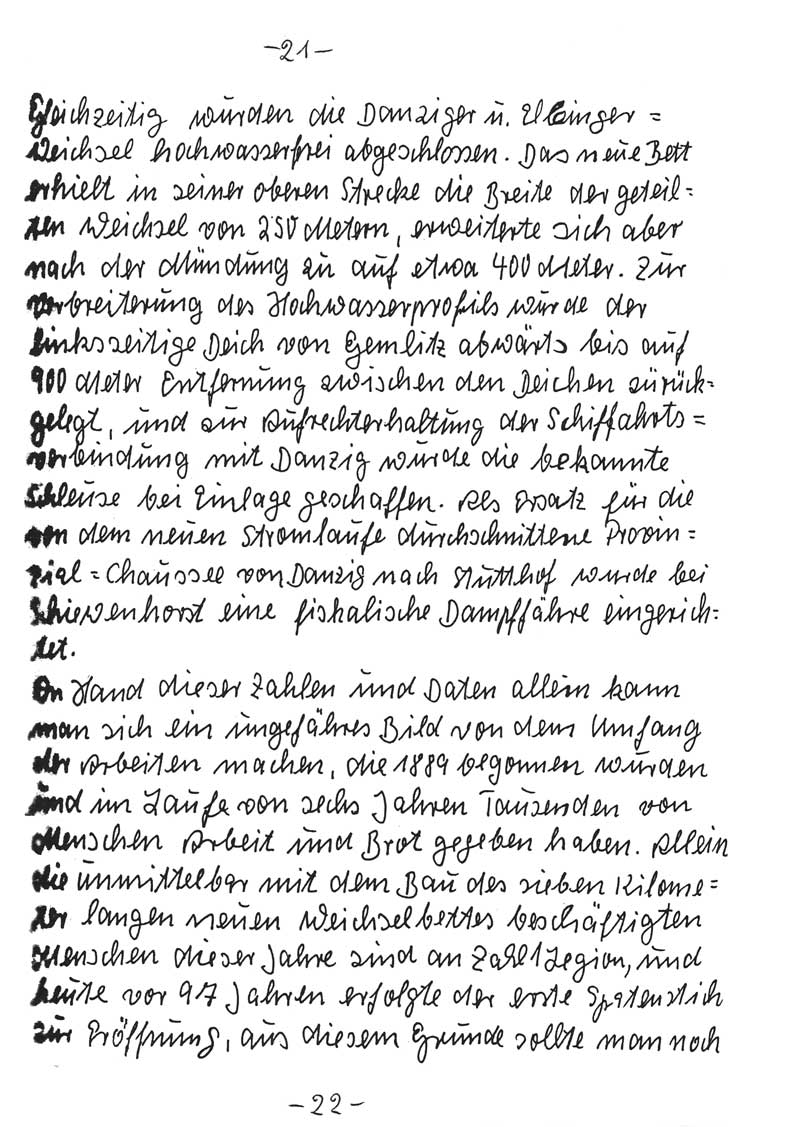 -21-
Gleichzeitig wurden die Danziger u. Elbinger =
Weichsel hochwasserfrei abgeschlossen. Das neue Bett
erhielt in seiner oberen Strecke die Breite der geteil=
ten Weichsel von 250 Metern, erweiterte sich aber
nach der Mündung zu auf etwa 400 Meter. Zur
Verbreiterung des Hochwasserprofils wurde der
linksseitige Deich von Gemlitz abwärts bis auf
900 Meter Entfernung zwischen den Deichen zurück=
gelegt, und zur Aufrechterhaltung der Schiffahrts=
verbindung mit Danzig wurde die bekannte
Schleuse bei Einlage geschaffen. Als Ersatz für die
von dem neuen Stromlaufe durchschnittene Provin=
zial = Chaussee von Danzig nach Stutthof wurde bei
Schiewenhorst eine fiskalische Dampffähre eingerich=
tet.
An Hand dieser Zahlen und Daten allein kann
man sich ein ungefähres Bild von dem Umfang
der Arbeiten machen, die 1889 begonnen wurden
und im Laufe von sechs Jahren Tausenden von
Menschen Arbeit und Brot gegeben haben. Allein
die unmittelbar mit dem Bau des sieben Kilome=
ter langen neuen Weichselbettes beschäftigten
Menschen dieser Jahre sind an Zahl Legion, und
heute vor 97 Jahren erfolgte der erste Spatenstich
zur Eröffnung, aus diesem Grunde sollte man noch
-22-